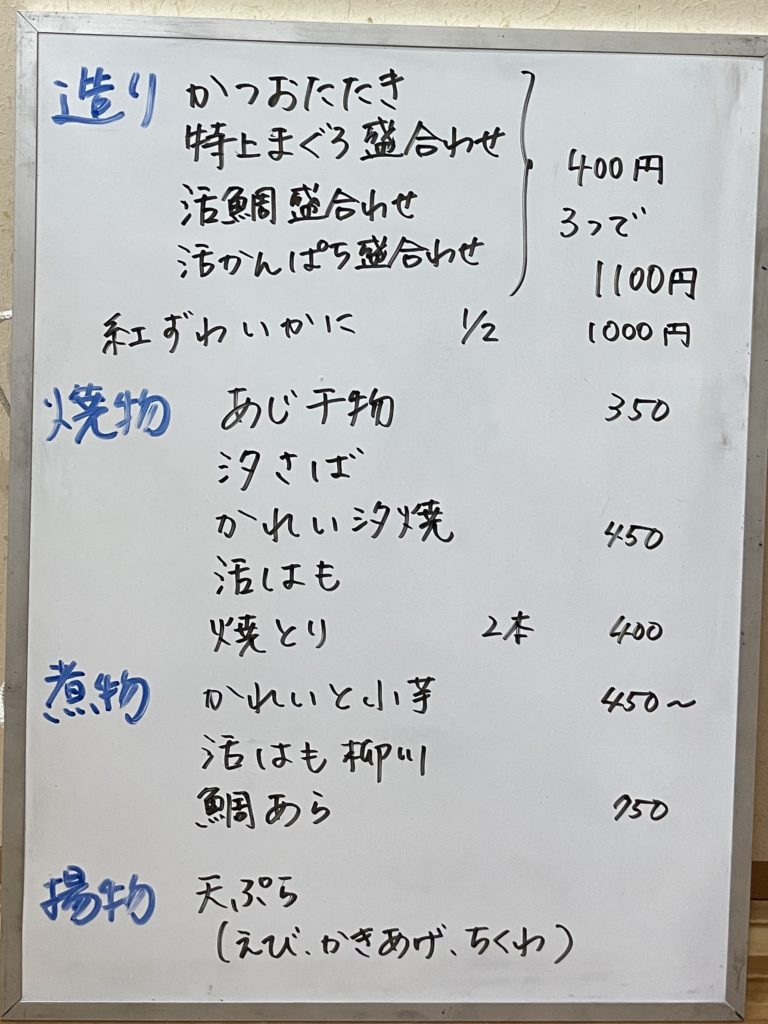 造り かつおたたき
特上まぐろ盛合わせ 400円
活鯛盛合わせ 3つで
活かんぱち盛合わせ 1100円
紅ずわいかに 1/2 1000円
焼物 あじ干物 350
汐さば
かれい汐焼 450
活はも
焼とり 2本 400
煮物 かれいと小芋 450〜
活はも柳川
鯛あら 750
揚物 天ぷら
(えび、かきあげ、ちくわ)